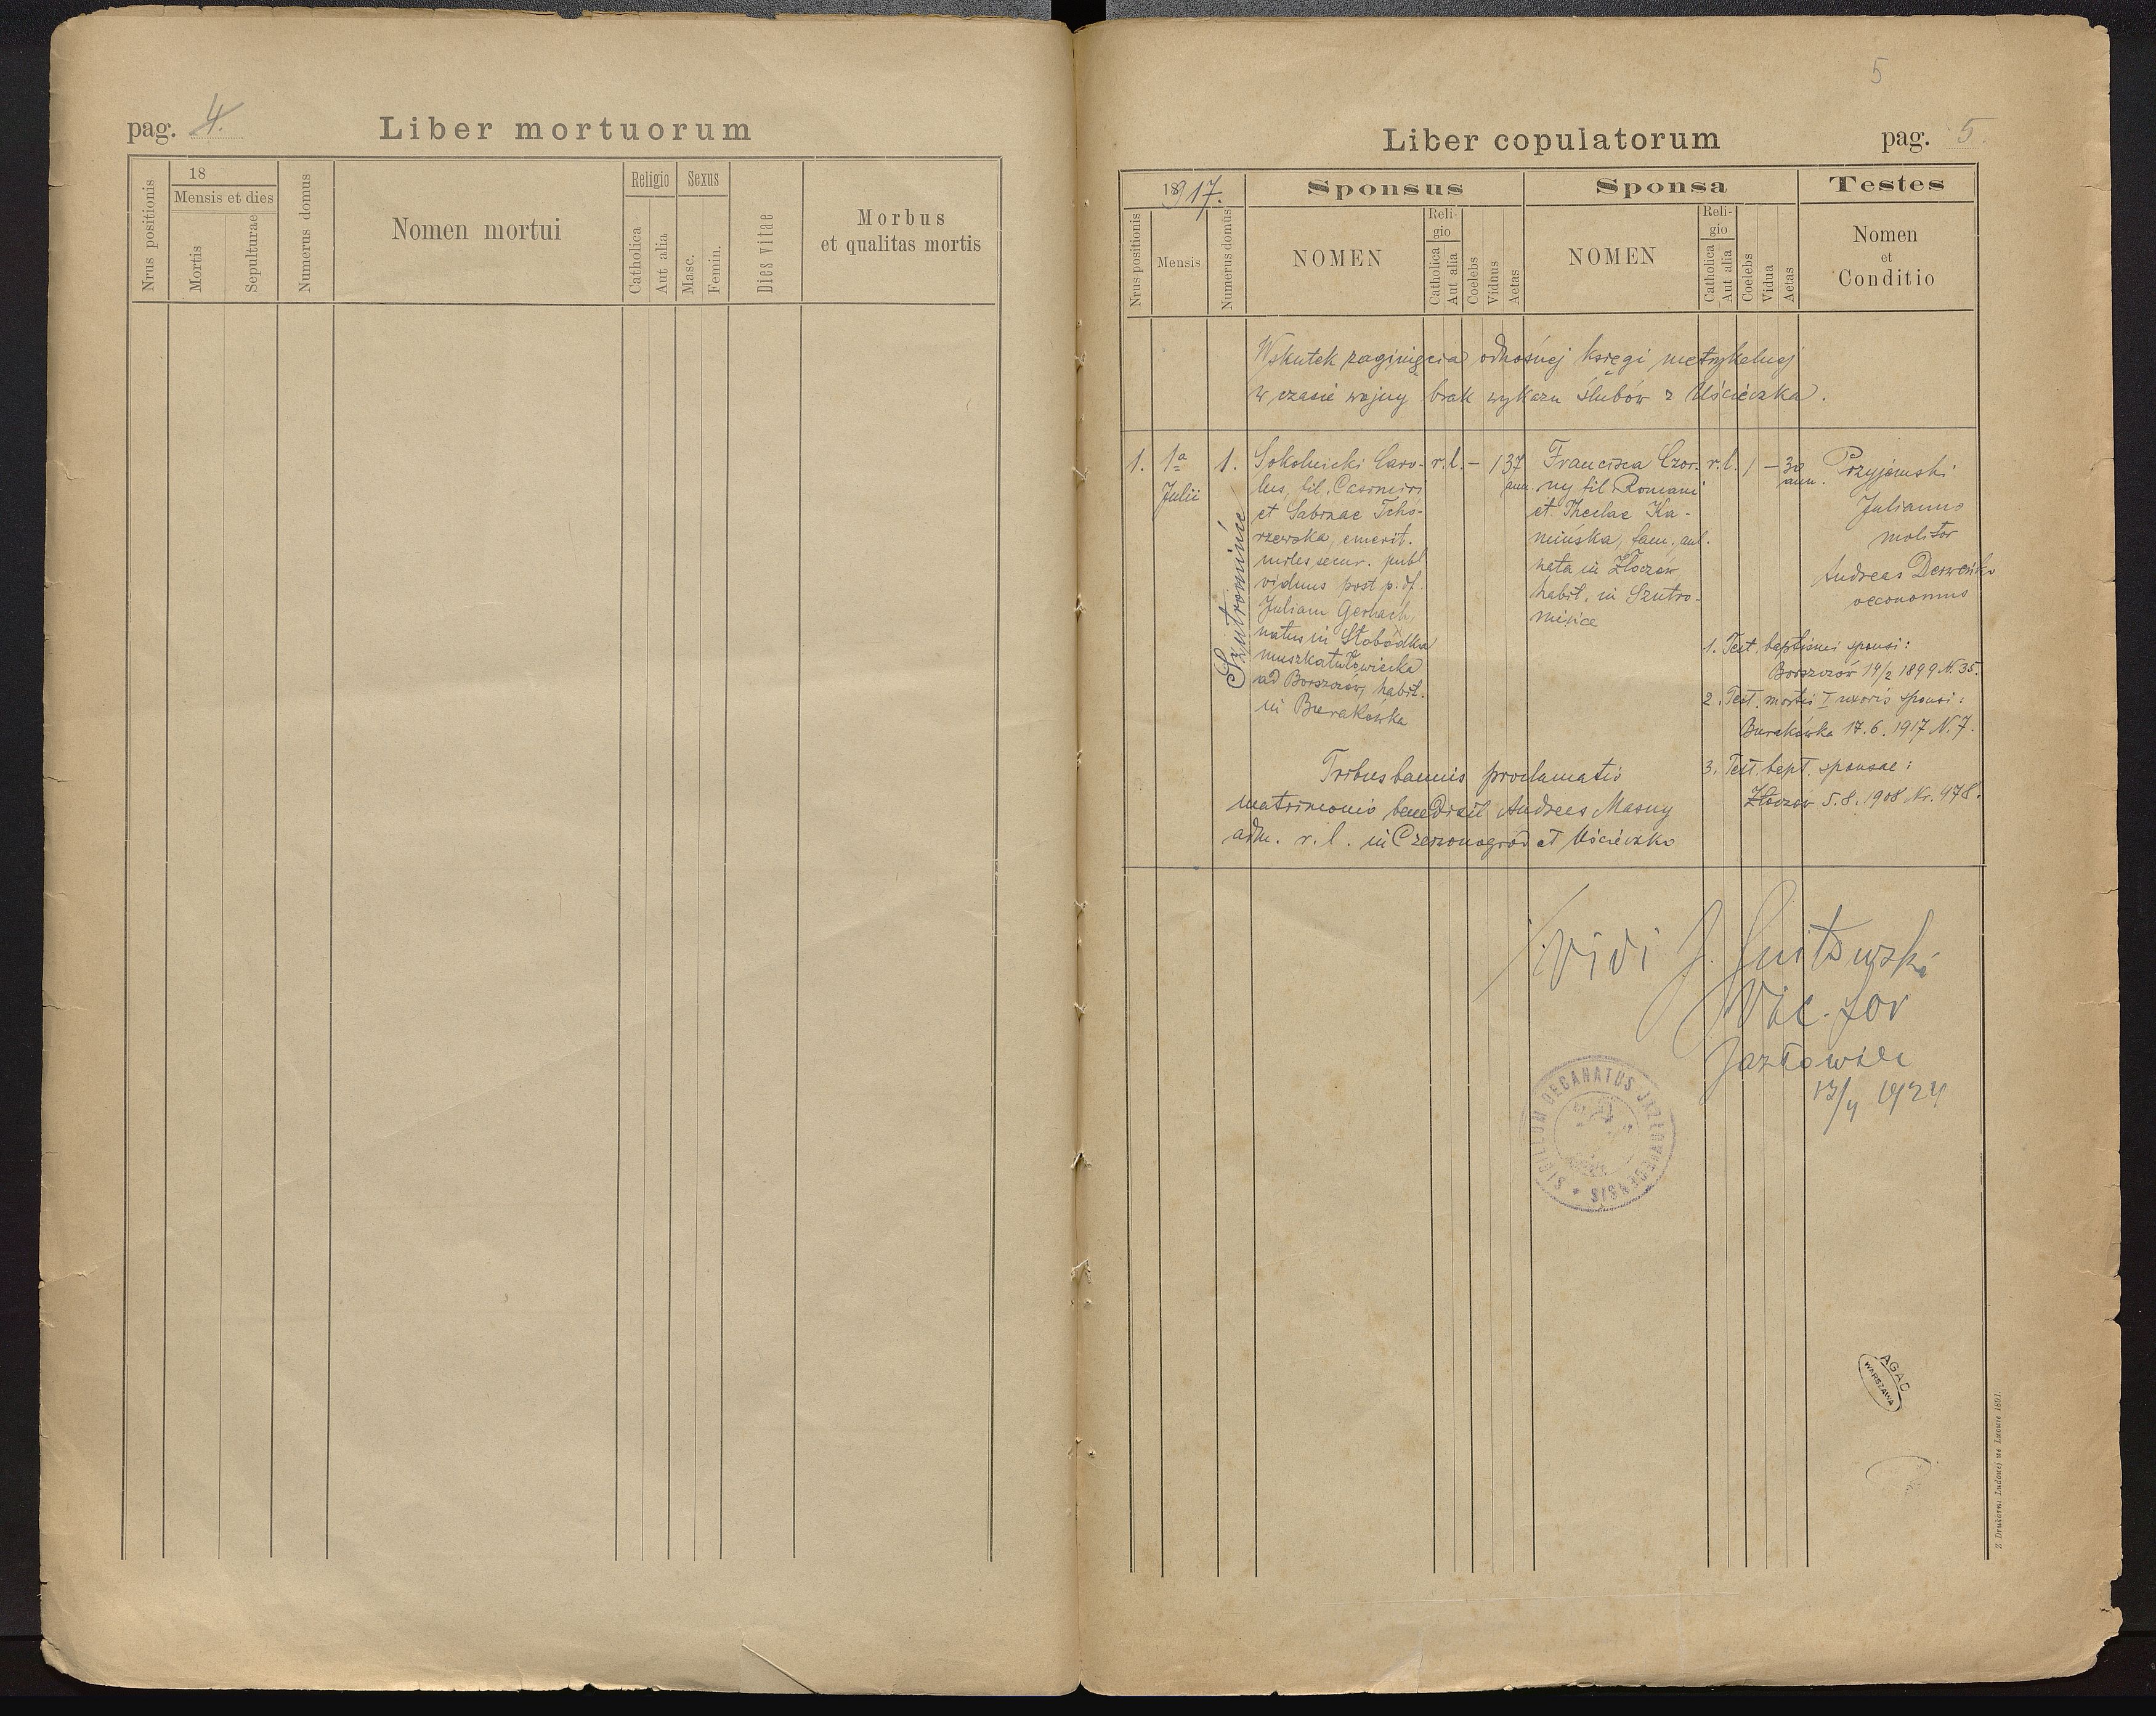 pag. 4.
Liber mortuorum
Nrus positionis
18
Mensis et dies
Mortis
Sepulturae
Numerus domus
Nomen mortui
Religio
Catholica
Aut alia
Sexus
Masc.
Femin.
Dies vitae
Morbus
et qualitas mortis
5
Liber copulatorum
pag. 5.
1917.
Nrus positionis
Mensis
Numerus domus
Sponsus
NOMEN
Reli-
gio
Catholica
Aut alia
Coelebs
Viduus
Aetas
Sponsa
NOMEN
Reli-
gio
Catholica
Aut alia
Coelebs
Vidua
Aetas
Testes
Nomen
et
Conditio
Wskutek zaginięcia odnośnej księgi metrykalnej
w czasie wojny brak wykazu ślubów z Uścieczka.
1.
1ª
Julii
1.
Szutromińce
Sokolnicki Caro-
lus, fil. Casimiri
et Sabinae Tcho-
rzewska, emerit.
miles secur. publ
viduus post p. df.
Juliam Gerlach,
natus in Słobódka
muszkatułowiecka
ad Borszczów, habit.
in Burakówka
r. l. – 1 37
ann.
Francisca Czor-
ny fil Romani
et Theclae Ka-
mińska, fam. aul.
nata in Złoczów
habit. in Szutro-
mińce
r. l. 1 – 30
ann.
Przyjemski
Julianus
molitor
Andreas Derweńko
oeconomus
1. Test. baptismi sponsi:
Borszczów 14/2 1899 N. 35.
2. Test. mortis I uxoris sponsi:
Burakówka 17.6.1917 N. 7.
3. Test. bapt. sponsae:
Złoczów 5.8.1908 Nr. 478.
Tribus bannis proclamatis
matrimonio benedixit Andreas Masny
adm. r. l. in Czerwonogród et Uścieczko
Vidi J.
Vic. for
Jazłowiec
1924
SIGILLUM DECANATUS JAZŁOWIECENSIS
AGAD
WARSZAWA
Z Drukarni Ludowej we Lwowie 1891.